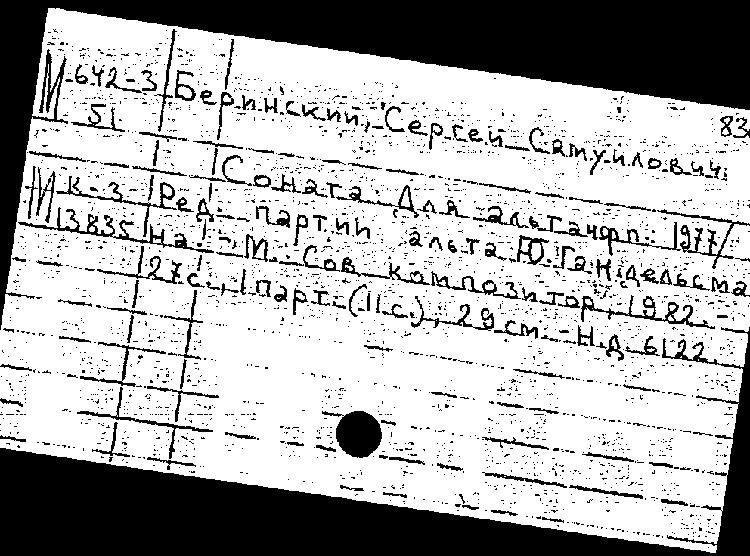 М-642-3 Беринский, Сергей Самуилович. 83
51
Соната. Для альта и фп. 1977/
М К-3 Ред. партии альта Ю. Гандельсма
13835 на. - М. Сов. композитор, 1982. -
27с., 1 парт. (11с.), 29см. - Н.д. 6122.